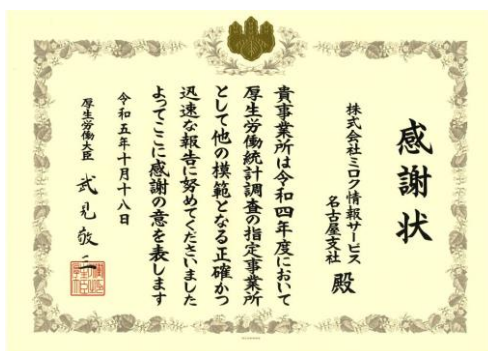 感謝状
株式会社ミロク情報サービス
名古屋支社 殿
貴事業所は令和四年度において
厚生労働統計調査の指定事業所
として他の模範となる正確かつ
迅速な報告に努めてくださいました
よってここに感謝の意を表します
令和五年十月十八日
厚生労働大臣 武見敬三